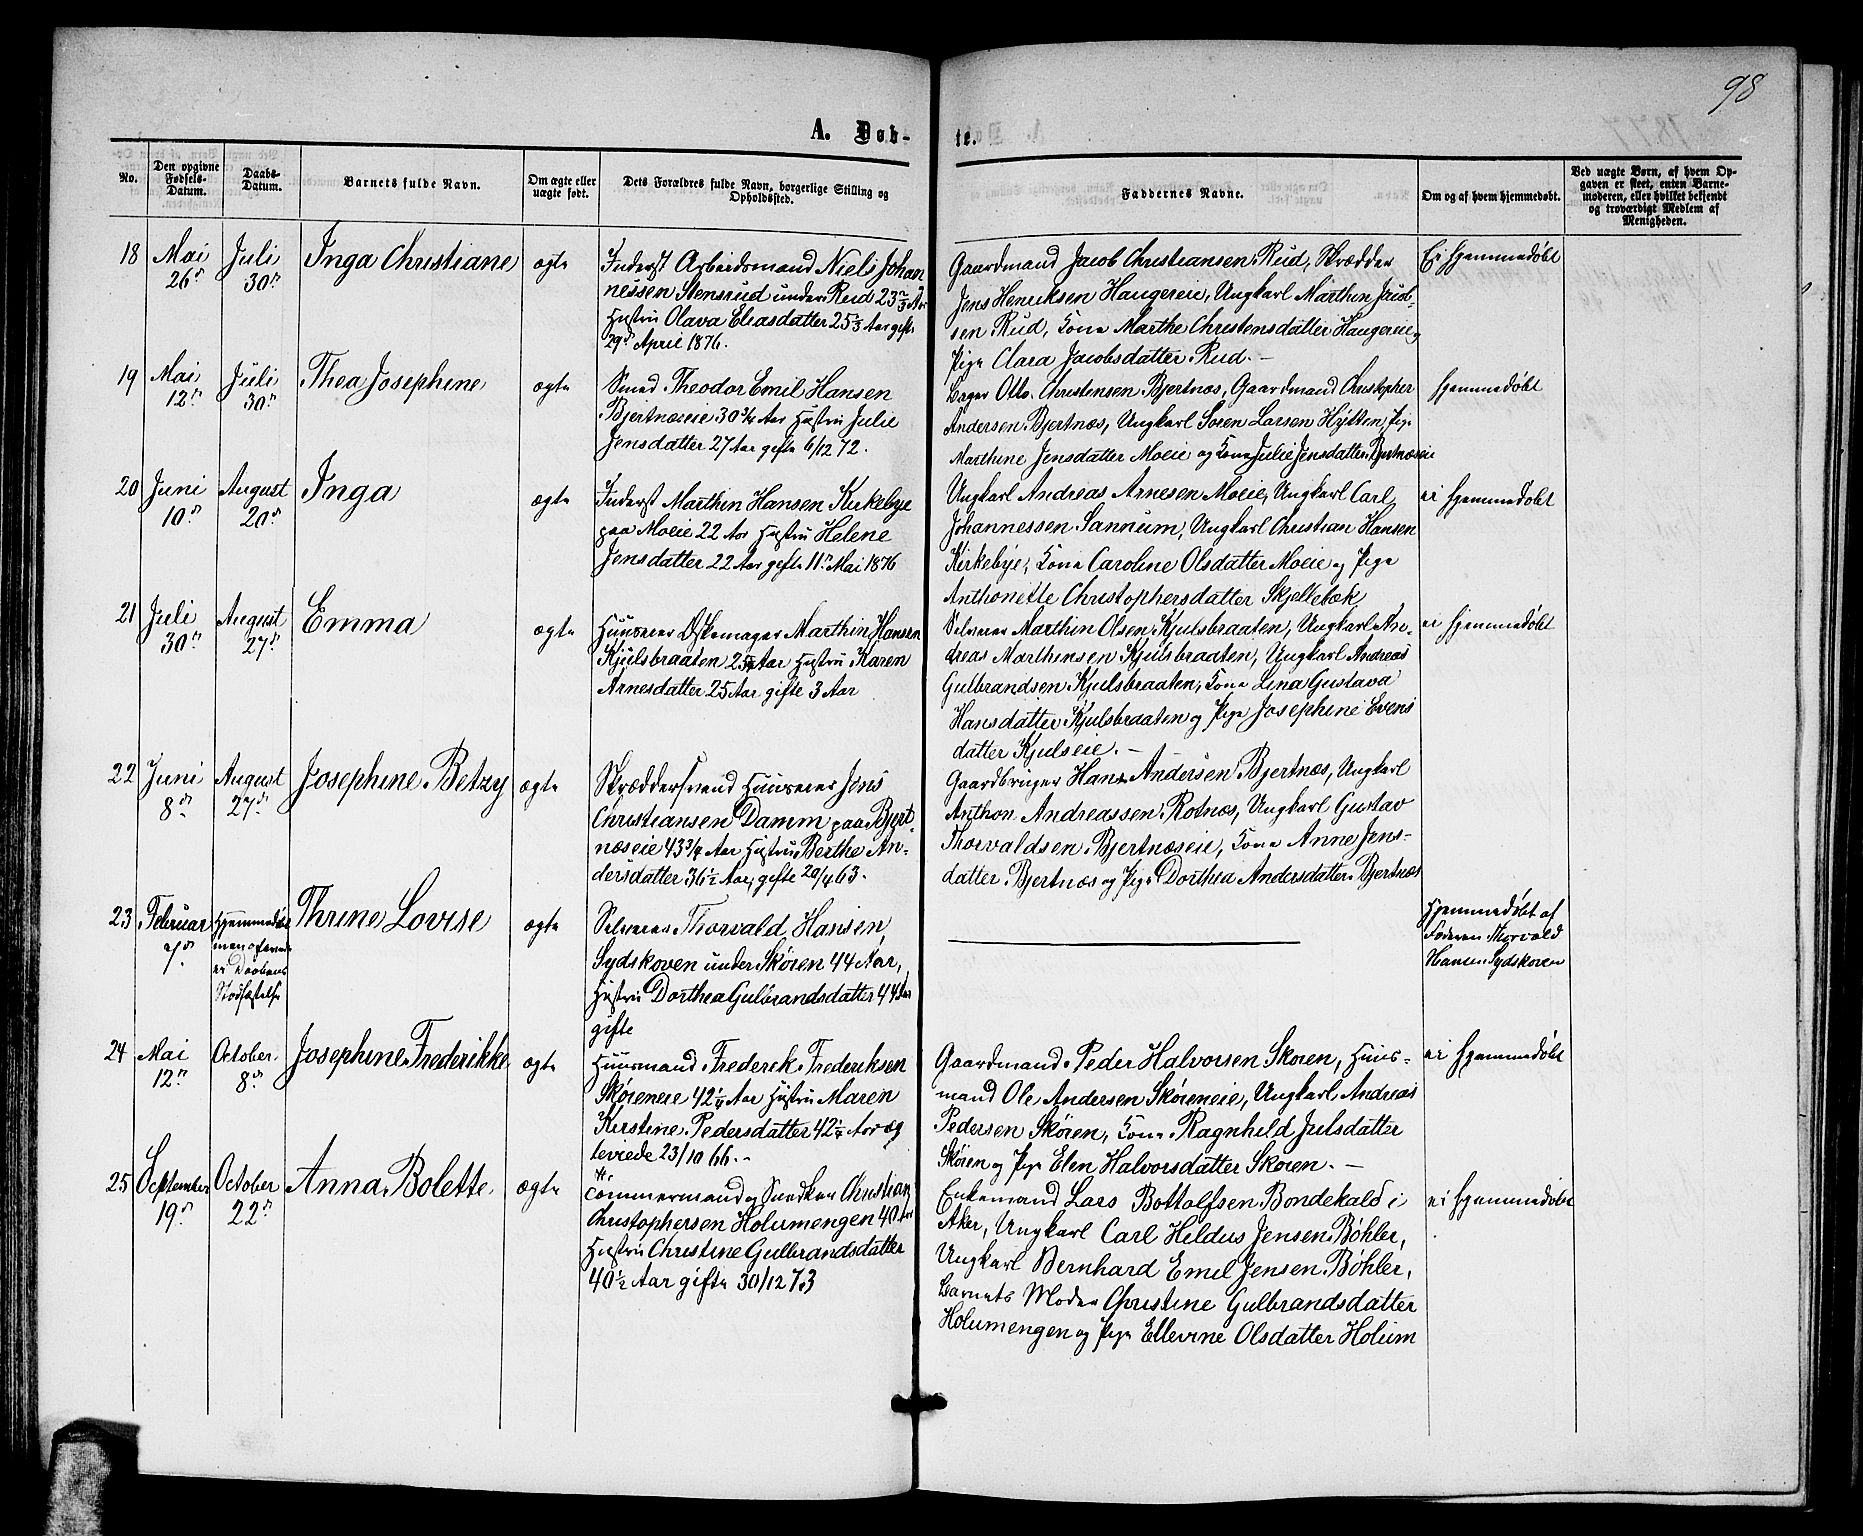 98
A. Døb-
te.
No.
Den opgivne Fødsels-Datum.
Daabs-Datum.
Barnets fulde Navn.
Om ægte eller uægte født.
Dets Forældres fulde Navn, borgerlige Stilling og Opholdssted.
Faddernes Navne.
Om og af hvem hjemmedøbt.
Ved uægte Børn, af hvem Op-
gaven er skeet, enten Barne-
moderen, eller hvilket bekjendt
og troværdigt Medlem af
Menigheden.
18
Mai
26d
Juli
30d
Inga Christiane
ægte
Inderst Arbeidsmand Niels Johan
nessen Stensrud under Rud 23 2/3 Aar
Hustru Olava Eliasdatter 25 1/3 Aar gifte
29d April 1876.
Gaardmand Jacob Christiansen Rud, Skrædder
Jens Henriksen Haugereie, Ungkarl Marthin Jacob-
sen Rud, Kone Marthe Christensdatter Haugereie og
Pige Clara Jacobsdatter Rud. -
Ei hjemmedøbt
19
Mai
12d
Juli
30d
Thea Josephine
ægte
Smed Theodor Emil Hansen
Bjertnæseie 30 3/4 Aar Hustru Julie
Jensdatter 27 Aar gifte 6/12 72.
Bager Otto Christensen Bjertnæs, Gaardmand Christopher
Andersen Bjertnæs, Ungkarl Soren Larsen Hÿtten, Pige
Marthine Jensdatter Moeie og Kone Julie Jensdatter Bjertnæseie
hjemmedøbt
20
Juni
10d
August
20d
Inga
ægte
Inderst Marthin Hansen Kirkebye
paa Moeie 22 Aar Hustru Helene
Jensdatter 22 Aar gifte 11d Mai 1876
Ungkarl Andreas Arnesen Moeie, Ungkarl Carl
Johannessen Sannum, Ungkarl Christian Hansen
Kirkebye, Kone Caroline Olsdatter Moeie og Pige
Anthonette Christophersdatter Skjellebæk
ei hjemmedøbt
21
Juli
30d
August
27d
Emma
ægte
Huuseier Marthin Hansen
Kjulsbraaten 25 Aar Hustru Karen
Arnesdatter 25 Aar gifte 3 Aar
Selveier Marthin Olsen Kjulsbraaten, Ungkarl An-
dreas Marthinsen Kjulsbraaten, Ungkarl Andreas
Gulbrandsen Kjulsbraaten, Kone Lina Gustava
Hansdatter Kjulsbraaten og Pige Josephine Evens
datter Kjulseie. -
ei hjemmedøbt
22
Juni
8d
August
27d
Josephine Betzy
ægte
Skræddersvend Huuseier Jens
Christiansen Damm paa Bjert-
næseie 43 3/4 Aar Hustru Berthe An-
dersdatter 36 1/2 Aar, gifte 20/4 63.
Gaardbruger Hans Andersen Bjertnæs, Ungkarl
Anthon Andreassen Rotnæs, Ungkarl Gustav
Thorvaldsen Bjertnæseie, Kone Anne Jens-
datter Bjertnæs og Pige Dorthea Andersdatter Bjertnæs
23
Februar
Hjemmedøbt
men afventer
ei Daabens
Stadfæstelse
Thrine Lovise
ægte
Selveier Thorvald Hansen,
Sydskoven under Skøien 44 Aar,
Hustru Dorthea Gulbrandsdatter 44 Aar
gifte
Hjemmedøbt af
Faderen Thorvald
Hansen Sydskoven
24
Mai
12d
October
8d
Josephine Frederikke
ægte
Huusmand Frederek Frederiksen
Skøieneie 42 1/4 Aar Hustru Maren
Kirstine Pedersdatter 42 1/4 Aar æg
teviede 23/10 66. -
Gaardmand Peder Halvorsen Skøien, Huus-
mand Ole Andersen Skøieneie, Ungkarl Andreas
Pedersen Skøien, Kone Ragnhild Julsdatter
Skøien og Pige Elen Halvorsdatter Skøien. -
ei hjemmedøbt
25
September
19d
October
22d
Anna Bolette
ægte
Tømmermand og Snedker Christian
Christophersen Holumengen 40 Aar
Hustru Christine Gulbrandsdatter
40 1/2 Aar gifte 30/12 73
Enkemand Lars Bottolfsen Bondekald i
Aker, Ungkarl Carl Heldus Jensen Bøhler,
Ungkarl Bernhard Emil Jensen Bøhler,
Barnets Moder Christine Gulbrandsdatter
Holumengen og Pige Ellevine Olsdatter Holum
ei hjemmedøbt